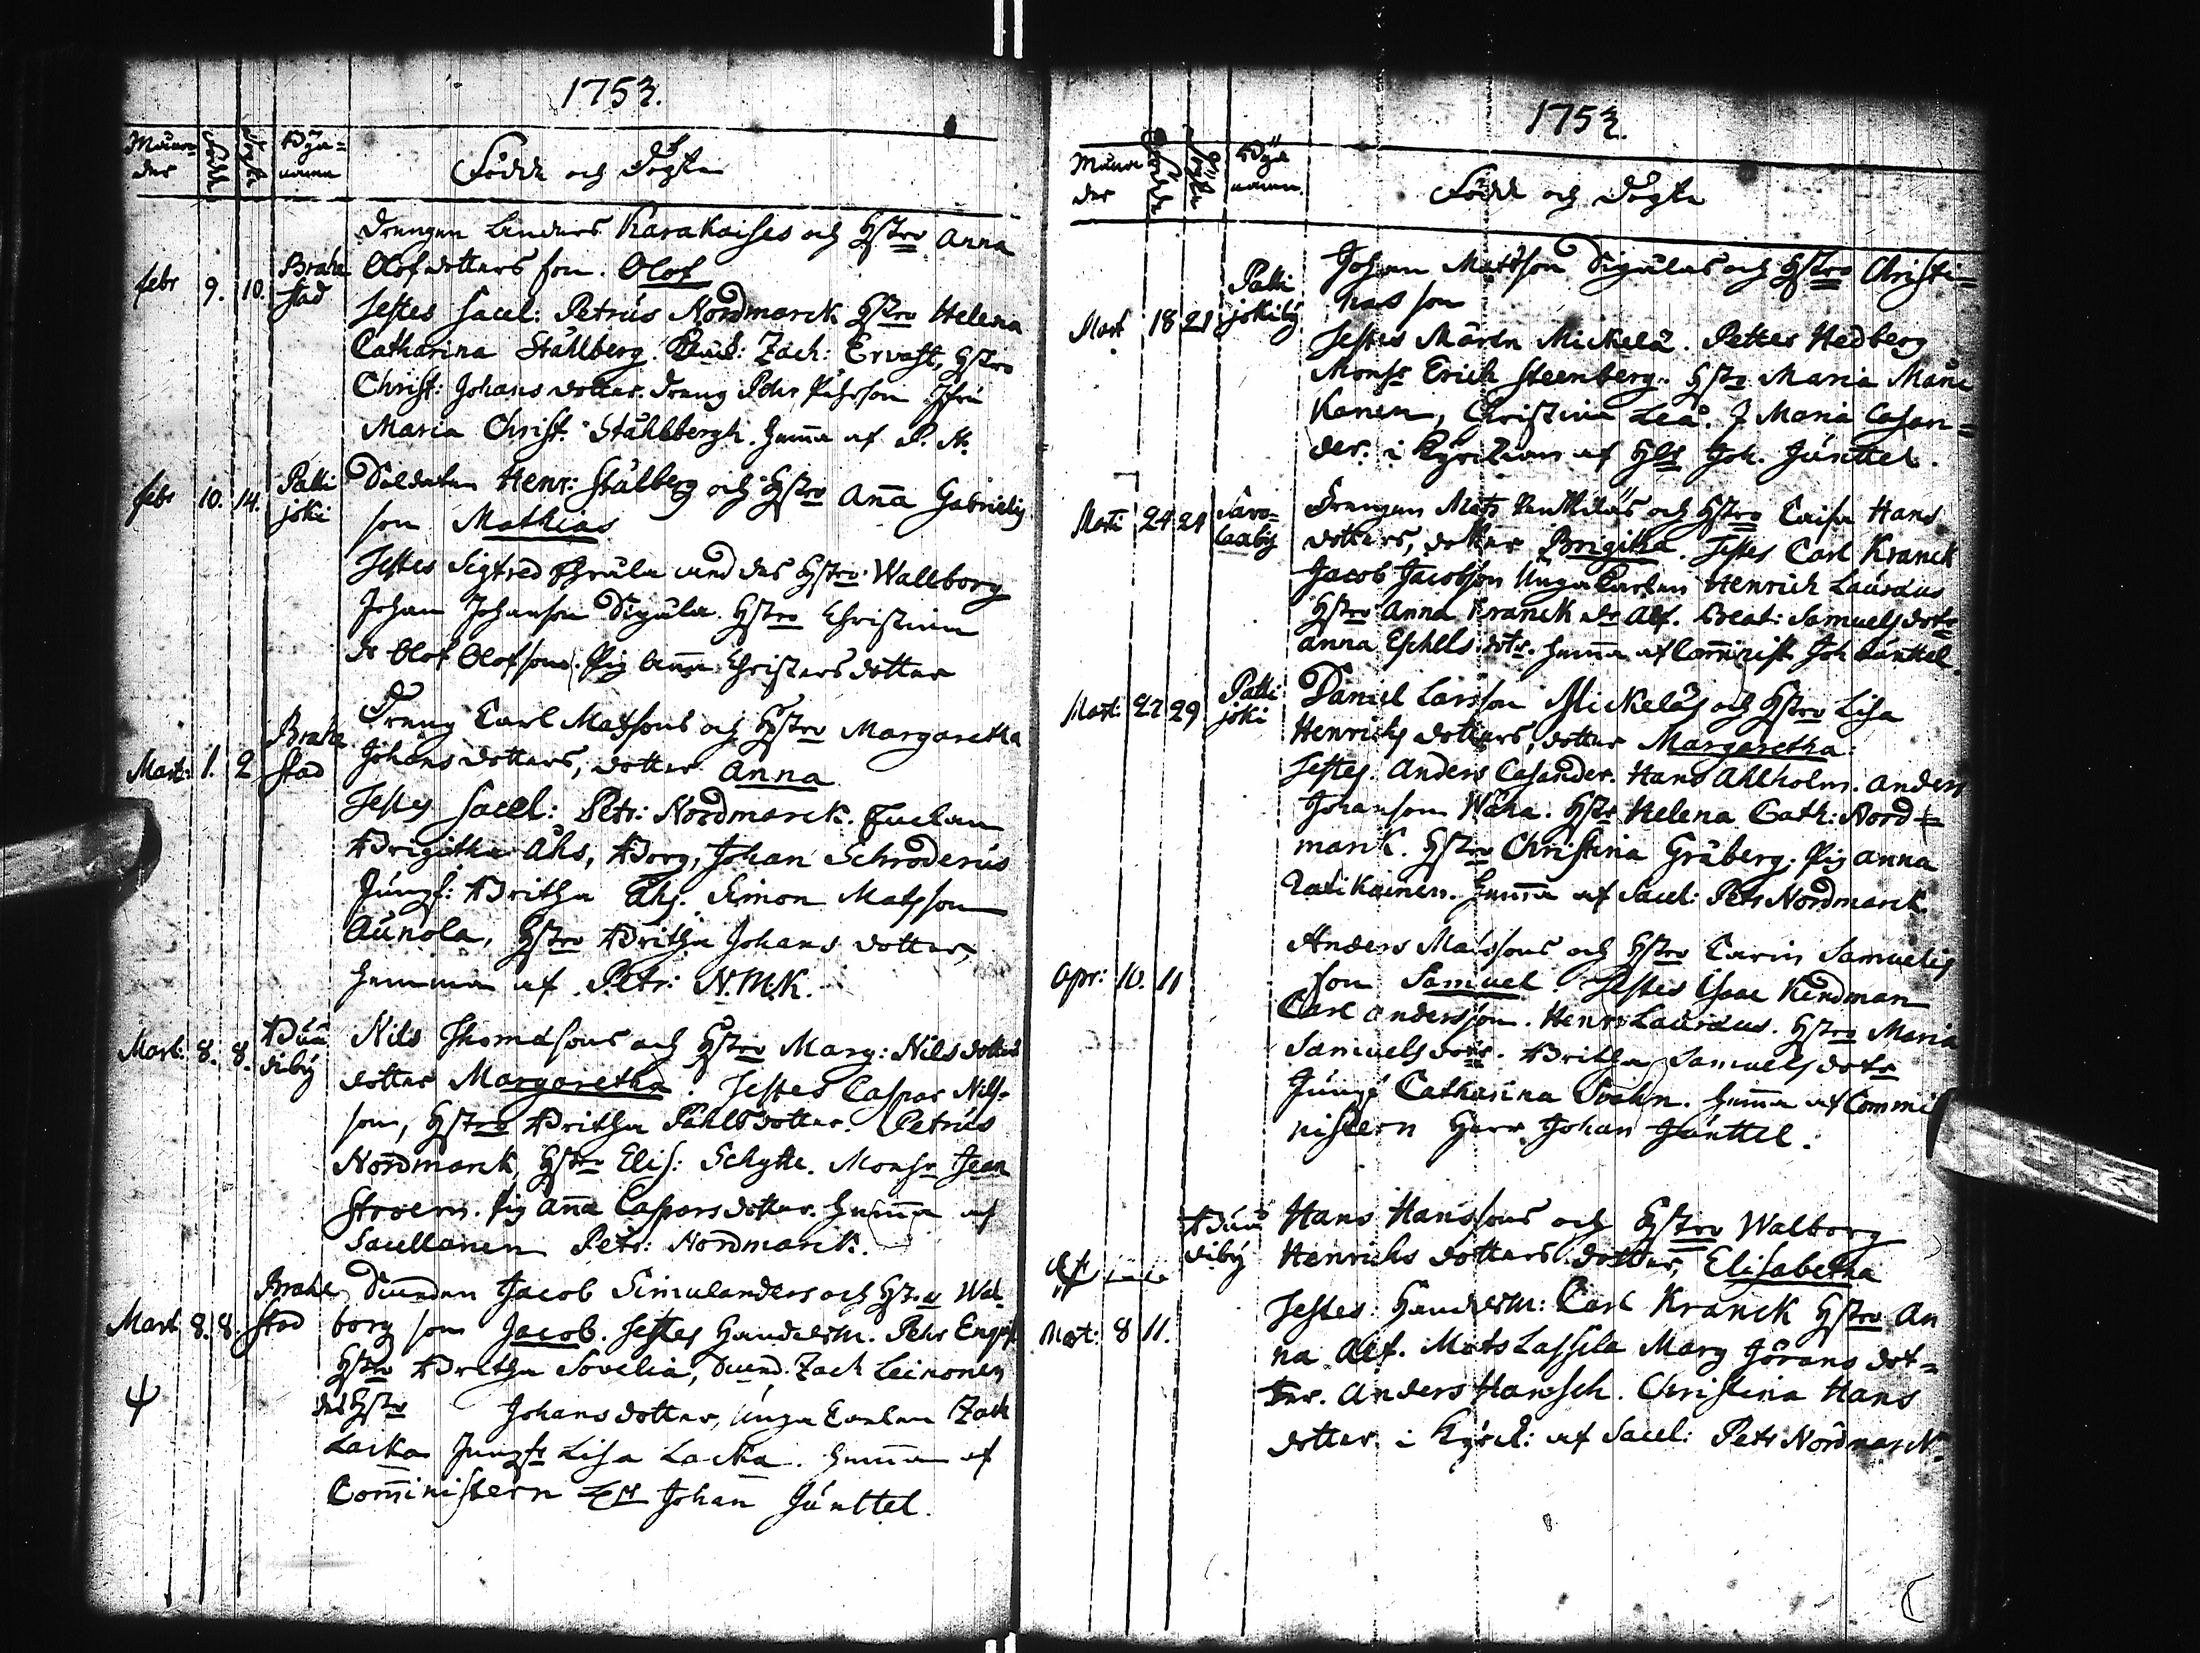 1753.
Månader Födde Döpte Byanamn Födde och Döpte
Drengen Anders Karakaises och Hstro Anna
febr 9. 10. Brahestad Olofdotters son. Olof
Testes Sacel: Petrus Nordmarck Hstro Helena
Catharina Ståhlberg. Zach: Ervast, Hstro
Christ: Johans dotter. Dreng Pehr Pehrson Jfru
Maria Christ. Ståhlbergh. hema af P. N.
febr 10. 14. Pattijoki Soldaten Henr: Stålberg och Hstro Anna Gabrielis
son Mathias
Testes Sigfred und des Hstro Wallborg
Johan Johanson Sigula. Hstro Christina
dr Olof Olofson. Pig Anna Christersdotter
Dreng Carl Matsons och Hstro Margaretha
Mart: 1. 2 Brahestad Johans dotters, dotter Anna
Testes Sacel: Petr: Nordmarck. Enckan
Brigitha Åhs, Borg, Johan Schroderus
Jungf: Britha Åhs. Simon Matsson
Aunola, Hstro Britha Johans dotter,
hemma af Petr: N.M.K.
Mart: 8. 8. Nils Thomasons och Hstro Marg: Nils dotters
dotter Margaretha. Testes Caspar Nils-
son, Hstro Britha Påhlsdotter. Petrus
Nordmarck, Hstro Elis: Schytte. Monsr Jean
Pig Anna Caspars dotter. hemma af
Sacellanen Petr: Nordmarck.
Mart 8. 8. Brahestad Jacob Simulanders och Hstro Wal-
borg son Jacob. Testes Handelsm. Pehr
Hstro Britha Sovelia, Zach Leinonen
des Hstro Johans dotter, Unga Carlen Zach
Lacka Jungfr Lisa Lacka. hemma af
Comministern Hr Johan Junttel.
1753.
Månader Födde Döpte Byanamn. Födde och Döpte
Johan Mattson Sigulas och Hstro Christi=
Mart 18 21 Pattijokiby nas son
Testes Mårtn Mickelä. Petter Hedberg
Monsr Erich Steenberg. Hstro Maria
Kanen, Christina Leå. J Maria Casan=
der. i Kyrckan af Joh. Junttel.
Marti 24 24 Savolaxby Drengen Mats och Hstro Caisa Hans
dotters, dotter Brigitha. Testes Carl Kranck
Jacob Jacobson Unga Carlen Henrich Laurdaus
Hstro Anna Kranck dr Alf. Beat: Samuels dotr
anna Eskels dotr. hemma af Comminist Joh Junttel.
Mart: 27 29 Pattijoki Daniel Larsson Mickeläs och Hstro Lisa
Henrichs dotters, dotter Margaretha:
Testes. Anders Casander. Hans Ahlholm. Anders
Johanson Wäha. Hstr Helena Cath: Nord=
marck. Hstro Christina Gråberg. Pig Anna
Ratikainen. hemma af Sacel: Petr Nordmarck.
Anders Matssons och Hstro Carin Samuelis
Apr: 10. 11 son Samuel. Testes Isaac Kendman
Carl andersson. Henr: Laurdaus. Hstro Maria
Samuelsdotr. Britha Samuelsdotr
Jungf Catharina Svahn. hemma af Commi
nistern Herr Johan Junttel.
Hans Hanssons och Hstro Walborg
Henrichs dotters dotter, Elisabetha
Testes Handelsm: Carl Kranck Hstro An
Mart: 8 11. na Alf. Mats Lassila Marg Jörans dot=
ter. Anders Hansch. Christina Hans
dotter. i Kyrck: af Sacel: Petr Nordmarck.